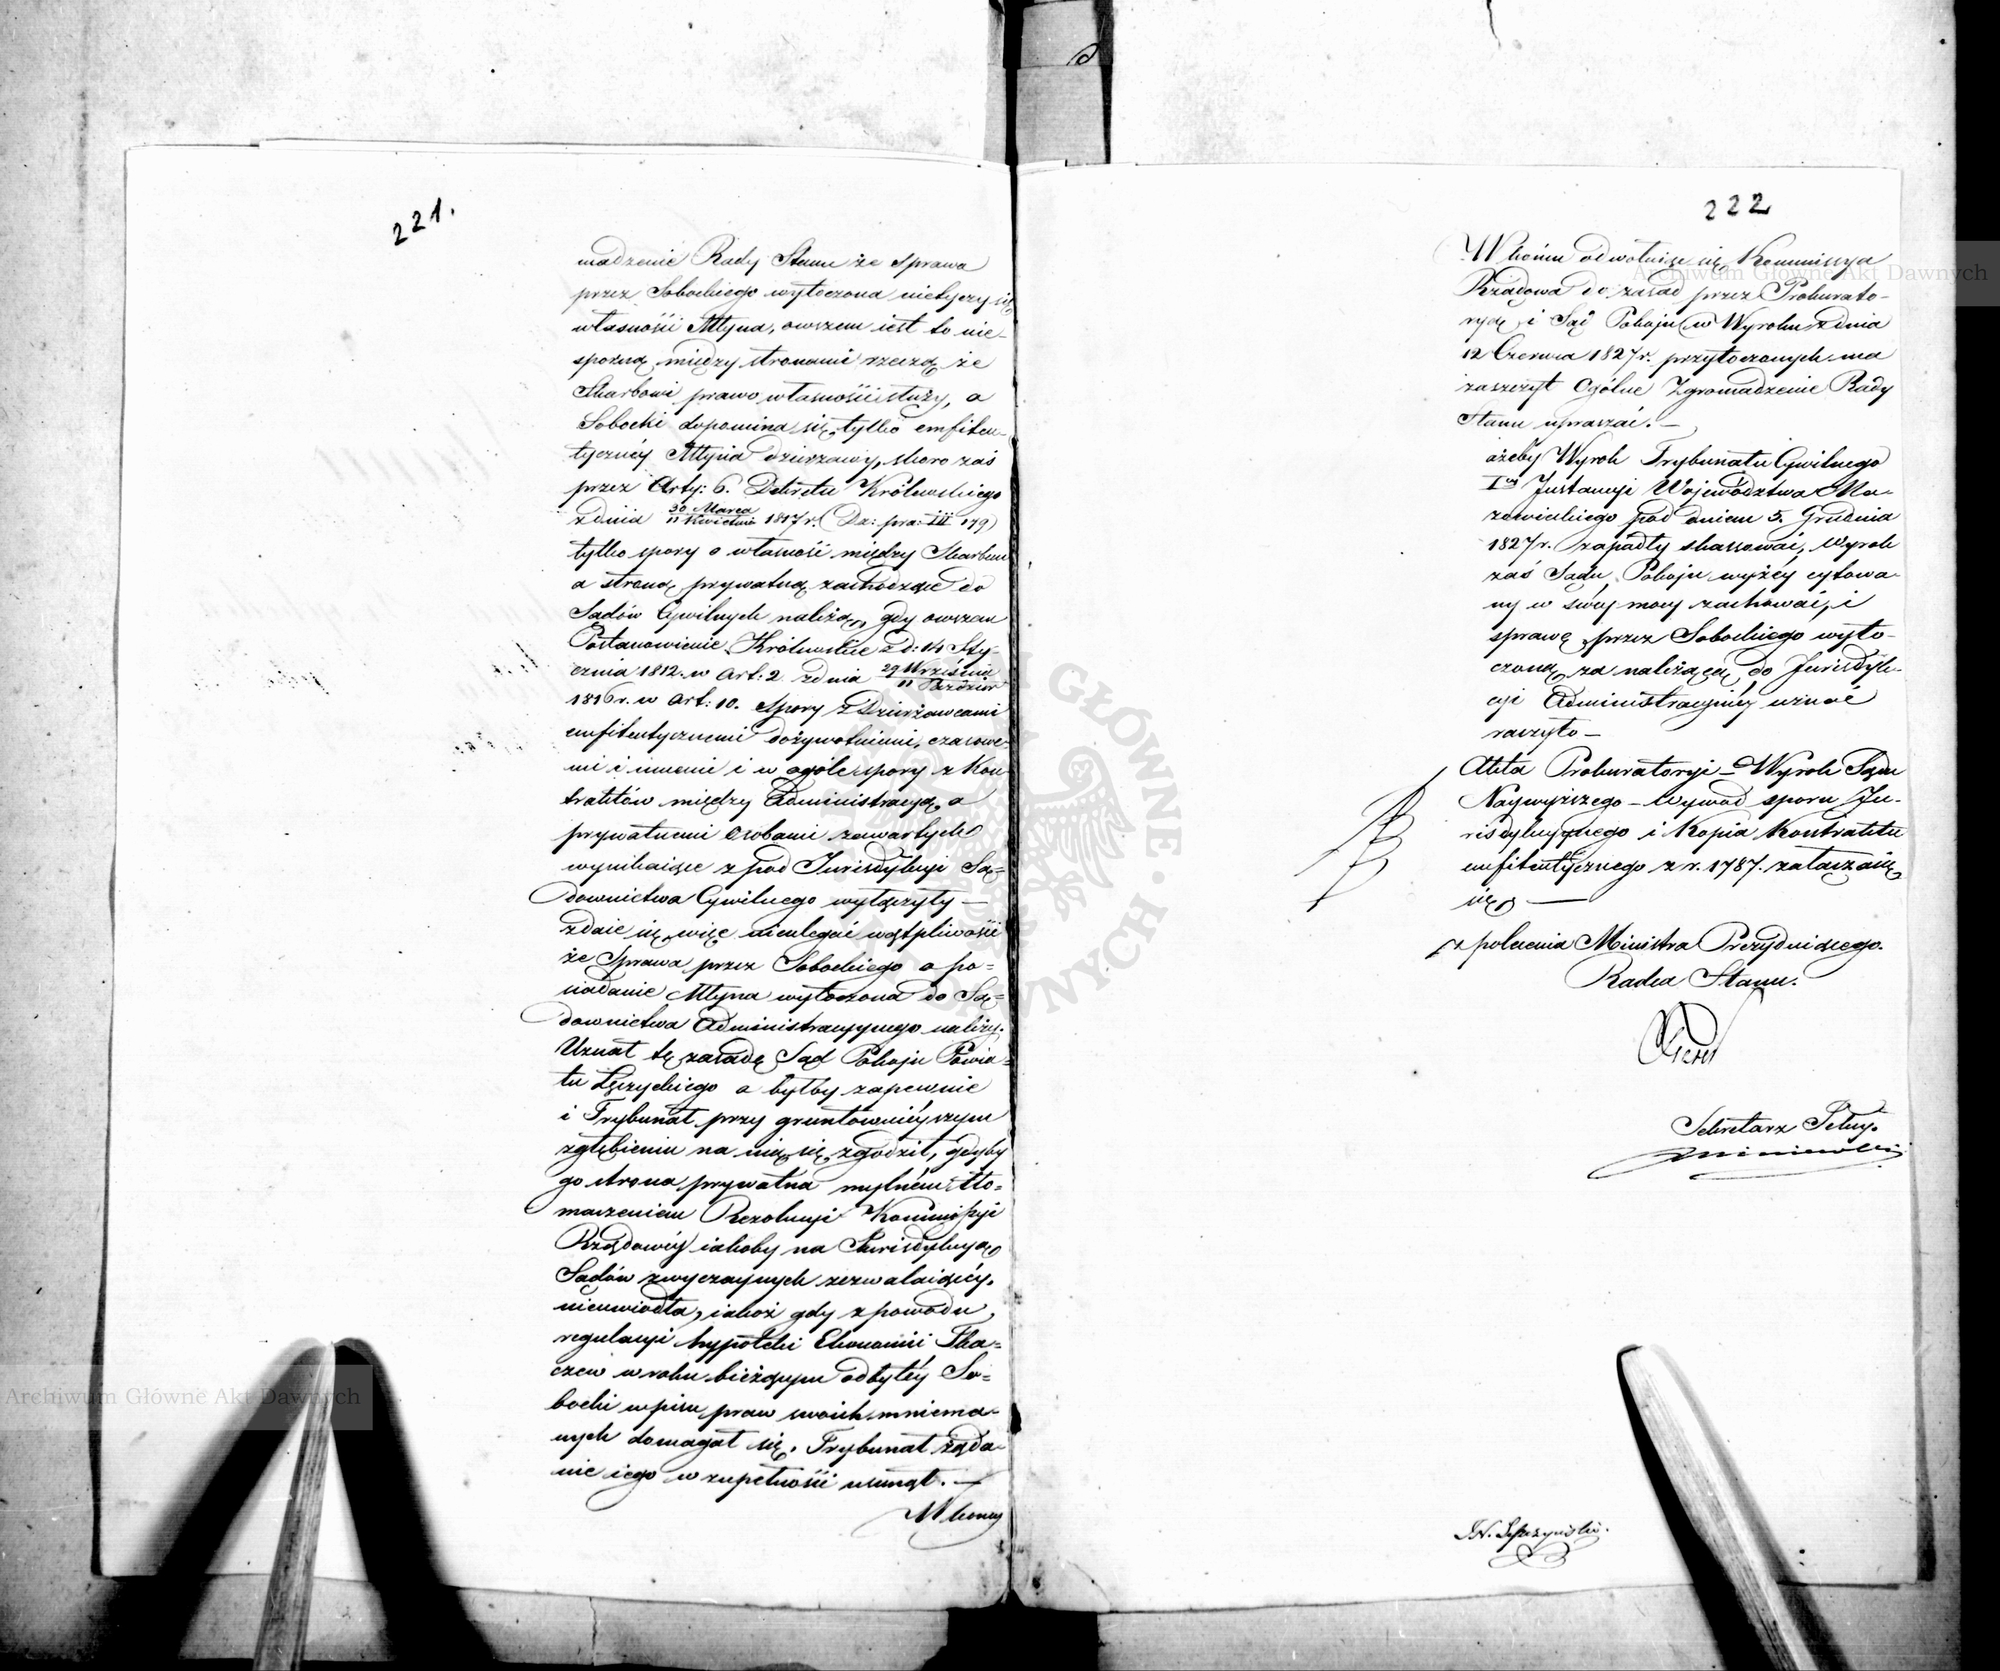 221.
madzenie Rady Stanu że sprawa
przez Sobockiego wytoczona nietyczy się
własności Młyna, owszem iest to nie-
sporną między stronami rzeczą że
Skarbowi prawo własności służy, a
Sobocki dopomina się tylko emfiteu-
tycznéy Młyna dzierżawy, skoro zaś
przez Arty: 6. Dekretu Królewskiego
z dnia 30 Marca / 11 Kwietnia 1817 r. (Dz: pra: III 179)
tylko spory o własność między Skarbem
a stroną prywatną zachodzące do
Sądów Cywilnych należą, gdy owszem
Postanowienie Królewskie z d: 14 Sty-
cznia 1812. w Art: 2 z dnia 29 Września / 11 Paździer
1816 r. w Art: 10. Spory z Dzierżawcami
emfiteutycznemi dożywotniemi, czasowe-
mi i innemi i w ogóle spory z Kon-
traktów między Administracyą, a
prywatnemi Osobami zawartych
wynikaiące z pod Jurisdykcyi Są-
downictwa Cywilnego wyłączyły —
zdaie się więc nieulegać wątpliwości
że Sprawa przez Sobockiego o po-
siadanie Młyna wytoczona do Są-
downictwa Administracyynego należy.
Uznał tę zasadę Sąd Pokoju Powia-
tu Łęczyckiego a byłby zapewnie
i Trybunał przy gruntownieyszym
zgłębieniu na nią się zgodził, gdyby
go strona prywatna mylném tło-
maczeniem Rezolucyi Kommissyi
Rządowéy iakoby na Jurisdykcyą
Sądów zwyczaynych zezwalaiącéy,
nieuwiodła, iakoż gdy z powodu
regulacyi hypoteki Ekonomii Tka-
czew w roku bieżącym odbytéy So-
bocki wpisu praw swoich mniema-
nych domagał się, Trybunał żąda-
nie iego w zupełności usunął. —
W końcu
222
W końcu odwołuiąc się Kommissya
Rządowa do zasad przez Prokurato-
ryą i Sąd Pokoju w Wyroku z dnia
12 Czerwca 1827 r. przytoczonych ma
zaszczyt Ogólne Zgromadzenie Rady
Stanu upraszać. —
ażeby Wyrok Trybunału Cywilnego
Iéy Instancyi Województwa Ma-
zowieckiego pod dniem 5. Grudnia
1827 r. zapadły skassować, Wyrok
zaś Sądu Pokoju wyżéy cytowa-
ny w swéy mocy zachować, i
sprawę przez Sobockiego wyto-
czoną za należącą do Jurisdyk-
cyi Administracyinéy uznać
raczyło —
Akta Prokuratoryi — Wyrok Sądu
Naywyższego — Wywód sporu Ju-
risdykcyynego i Kopia Kontraktu
emfiteutycznego z r. 1787. załączaią
się —
z polecenia Ministra Prezyduiącego.
Radca Stanu.
Sekretarz Jlny.
Archiwum Główne Akt Dawnych
Archiwum Główne Akt Dawnych